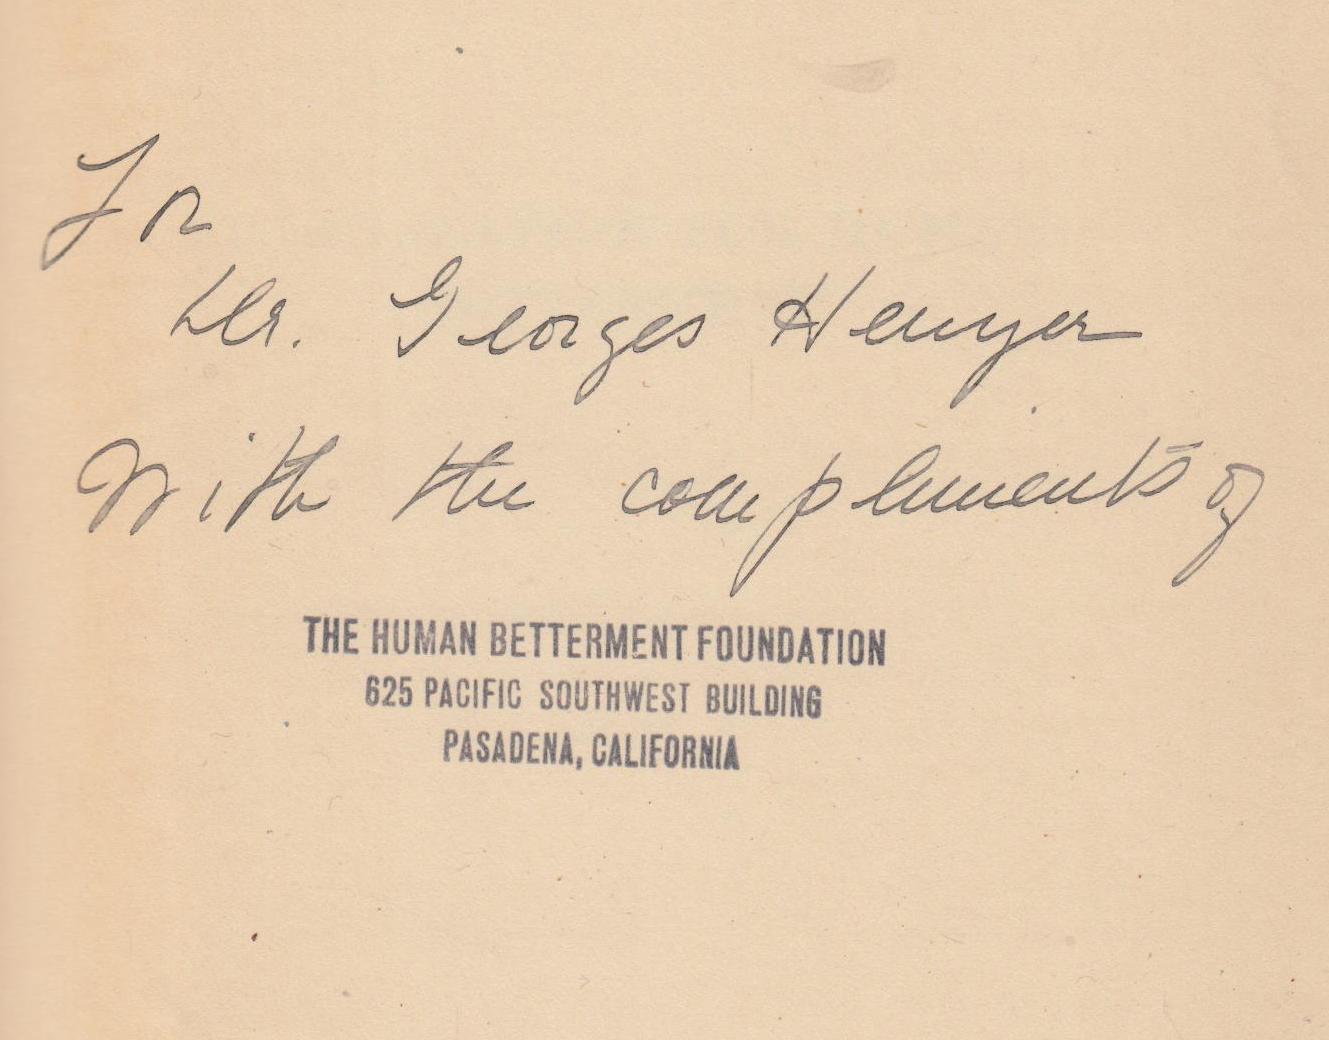 For
Dr. Georges Heuyer
With the compliments of
THE HUMAN BETTERMENT FOUNDATION
625 PACIFIC SOUTHWEST BUILDING
PASADENA, CALIFORNIA